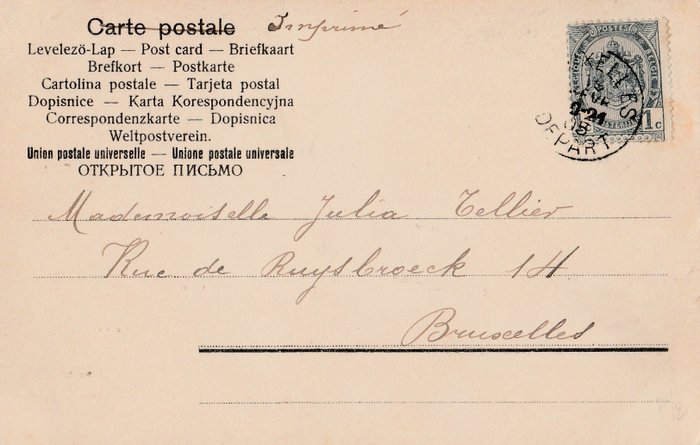 Carte postale Imprimé
Levelezö-Lap — Post card — Briefkaart
Brefkort — Postkarte
Cartolina postale — Tarjeta postal
Dopisnice — Karta Korespondencyjna
Correspondenzkarte — Dopisnica
Weltpostverein.
Union postale universelle — Unione postale universale
ОТКРЫТОЕ ПИСЬМО
POSTES
1 c
DEPART
Mademoiselle Julia Tellier
Rue de Ruysbroeck 14
Bruxelles